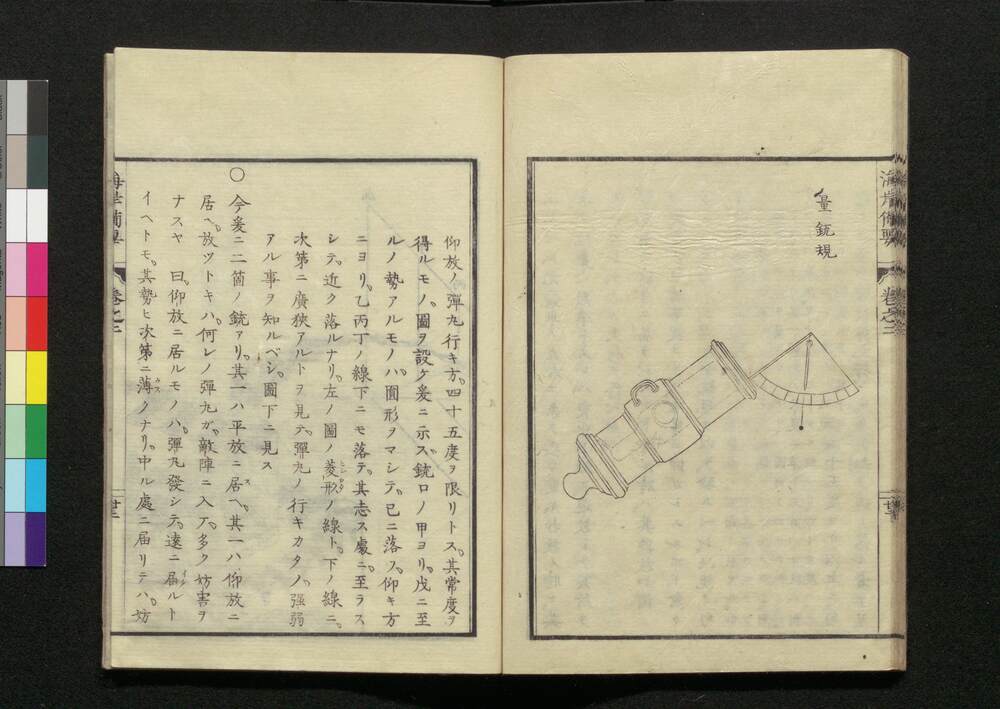 量銃規
仰放ノ彈丸行キ方。四十五度ヲ限リトス。其常度ヲ
得ルモノ。圖ヲ設ケ爰ニ示ス。銃口ノ甲ヨリ。戊ニ至
ルノ勢アルモノハ。圓形ヲマシテ。已ニ落フ。仰キ方
ニヨリ。乙丙丁ノ線下ニモ落テ。其志ス處ニ。至ラス
シテ。近ク落ルナリ。左ノ圖ノ菱形ノ線ト。下ノ線ニ。
次第ニ廣狹アルトヲ見テ。彈丸ノ行キカタノ。強弱
アル事ヲ知ルベシ。圖下ニ見ス
○今爰ニ二箇ノ銃アリ。其一ハ平放ニ居ヘ。其一ハ仰放ニ
居ヘ。放ツトキハ。何レノ彈丸ガ。敵陣ニ入ア。多ク妨害ヲ
ナスヤ 曰。仰放ニ居ルモノハ。彈丸發シテ。遠ニ届ルト
イヘトモ。其勢ヒ次第ニ薄クナリ。中ル處ニ届リテハ。妨
卷之三
廿三